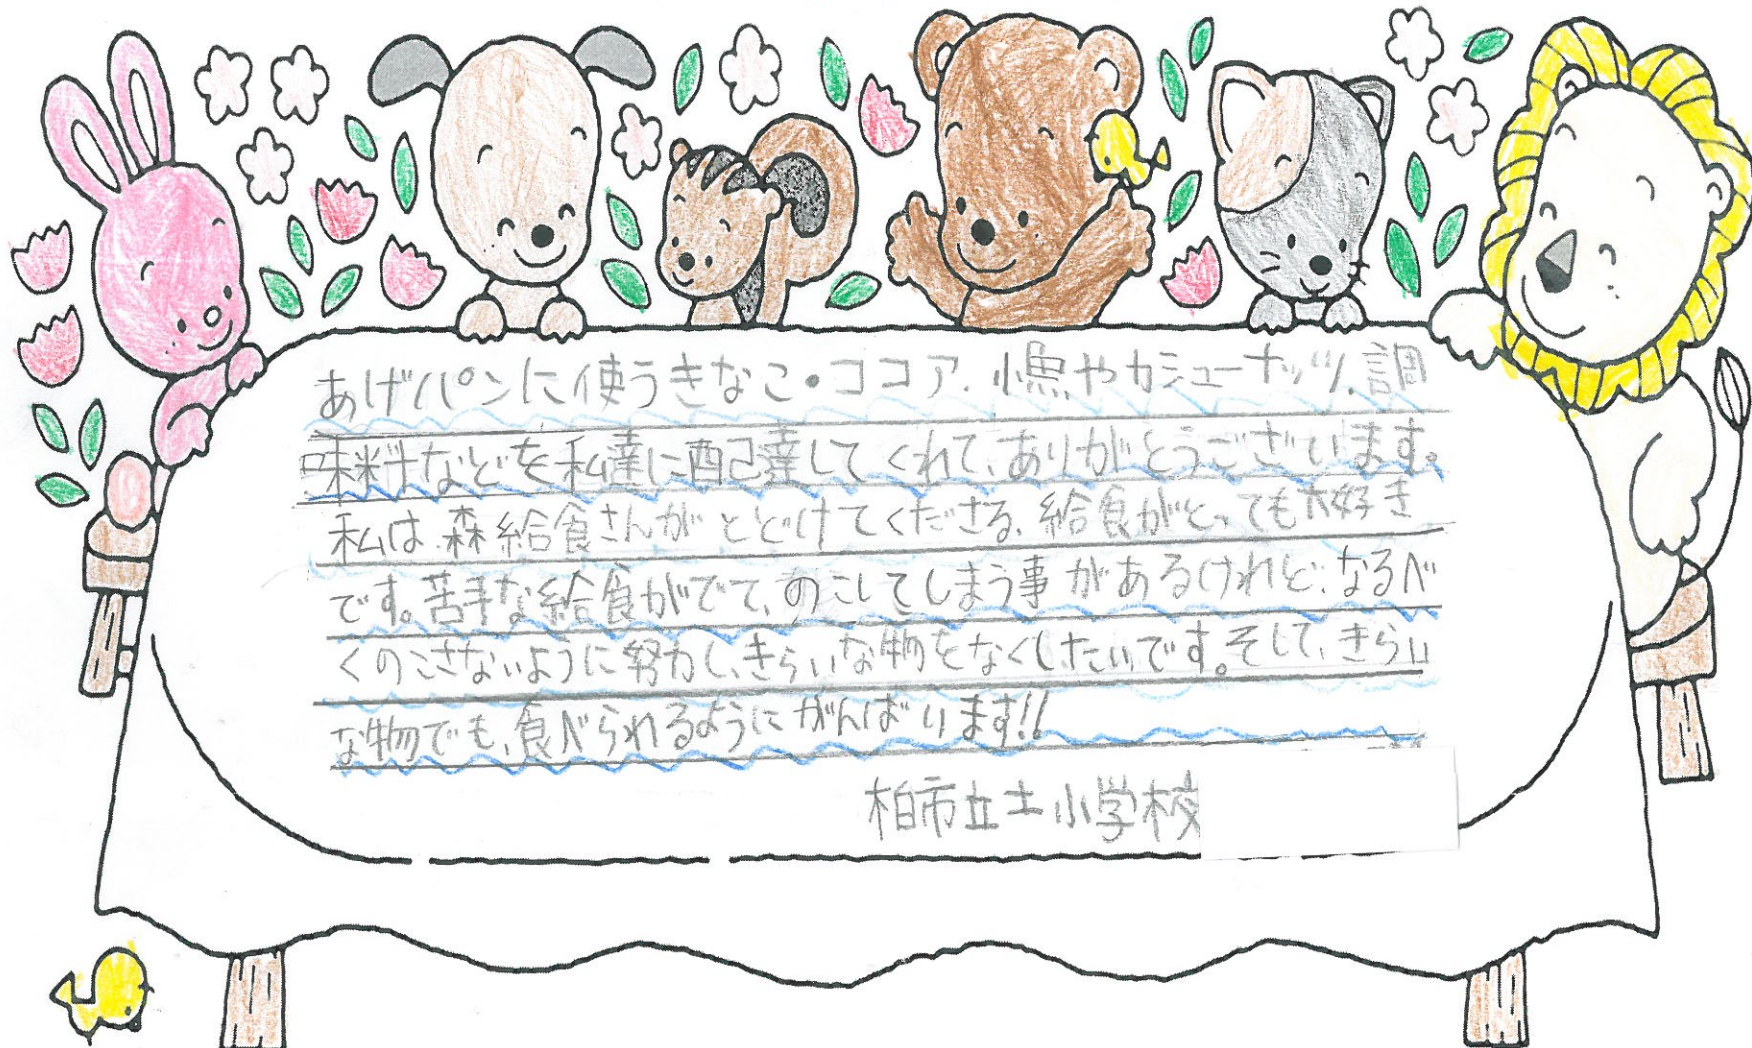 あげパンに使うきなこ・ココア、小魚やカシューナッツ、調
味料などを私達に配達してくれて、ありがとうございます。
私は、森給食さんがとどけてくださる、給食がとっても大好き
です。苦手な給食がでて、のこしてしまう事があるけれど、なるべ
くのこさないように努力し、きらいな物をなくしたいです。そして、きらい
な物でも、食べられるようにがんばります!!
柏市立土小学校